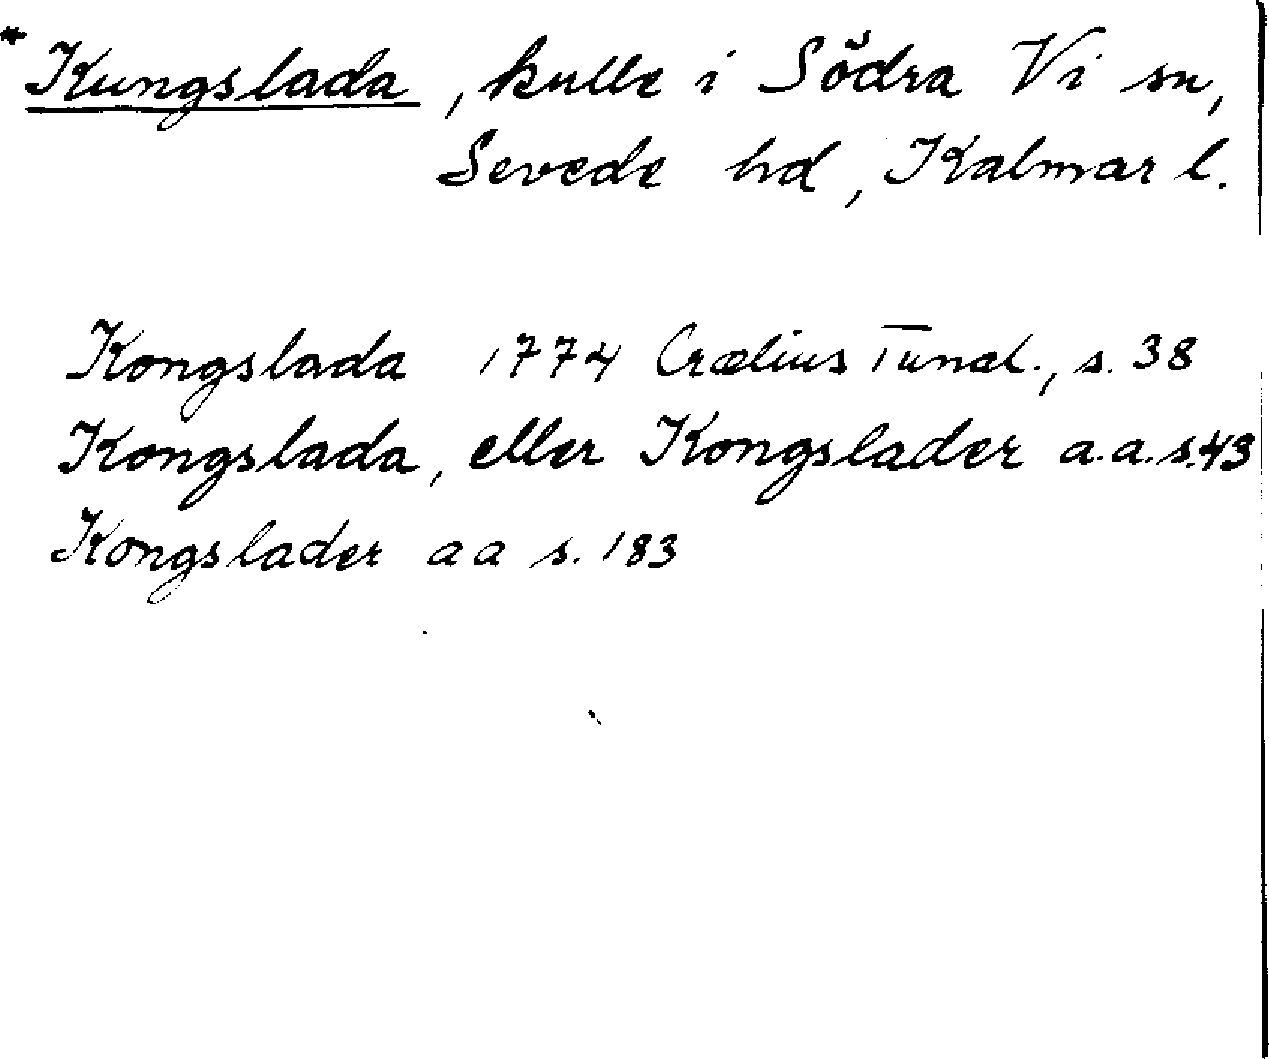 * Kungslada, kulle i Södra Vi sn,
Sevede hd, Kalmar l.
Kongslada 1774 Crælius Tunal., s. 38
Kongslada, eller Kongslader a.a. s.43
Kongslader a a s. 183